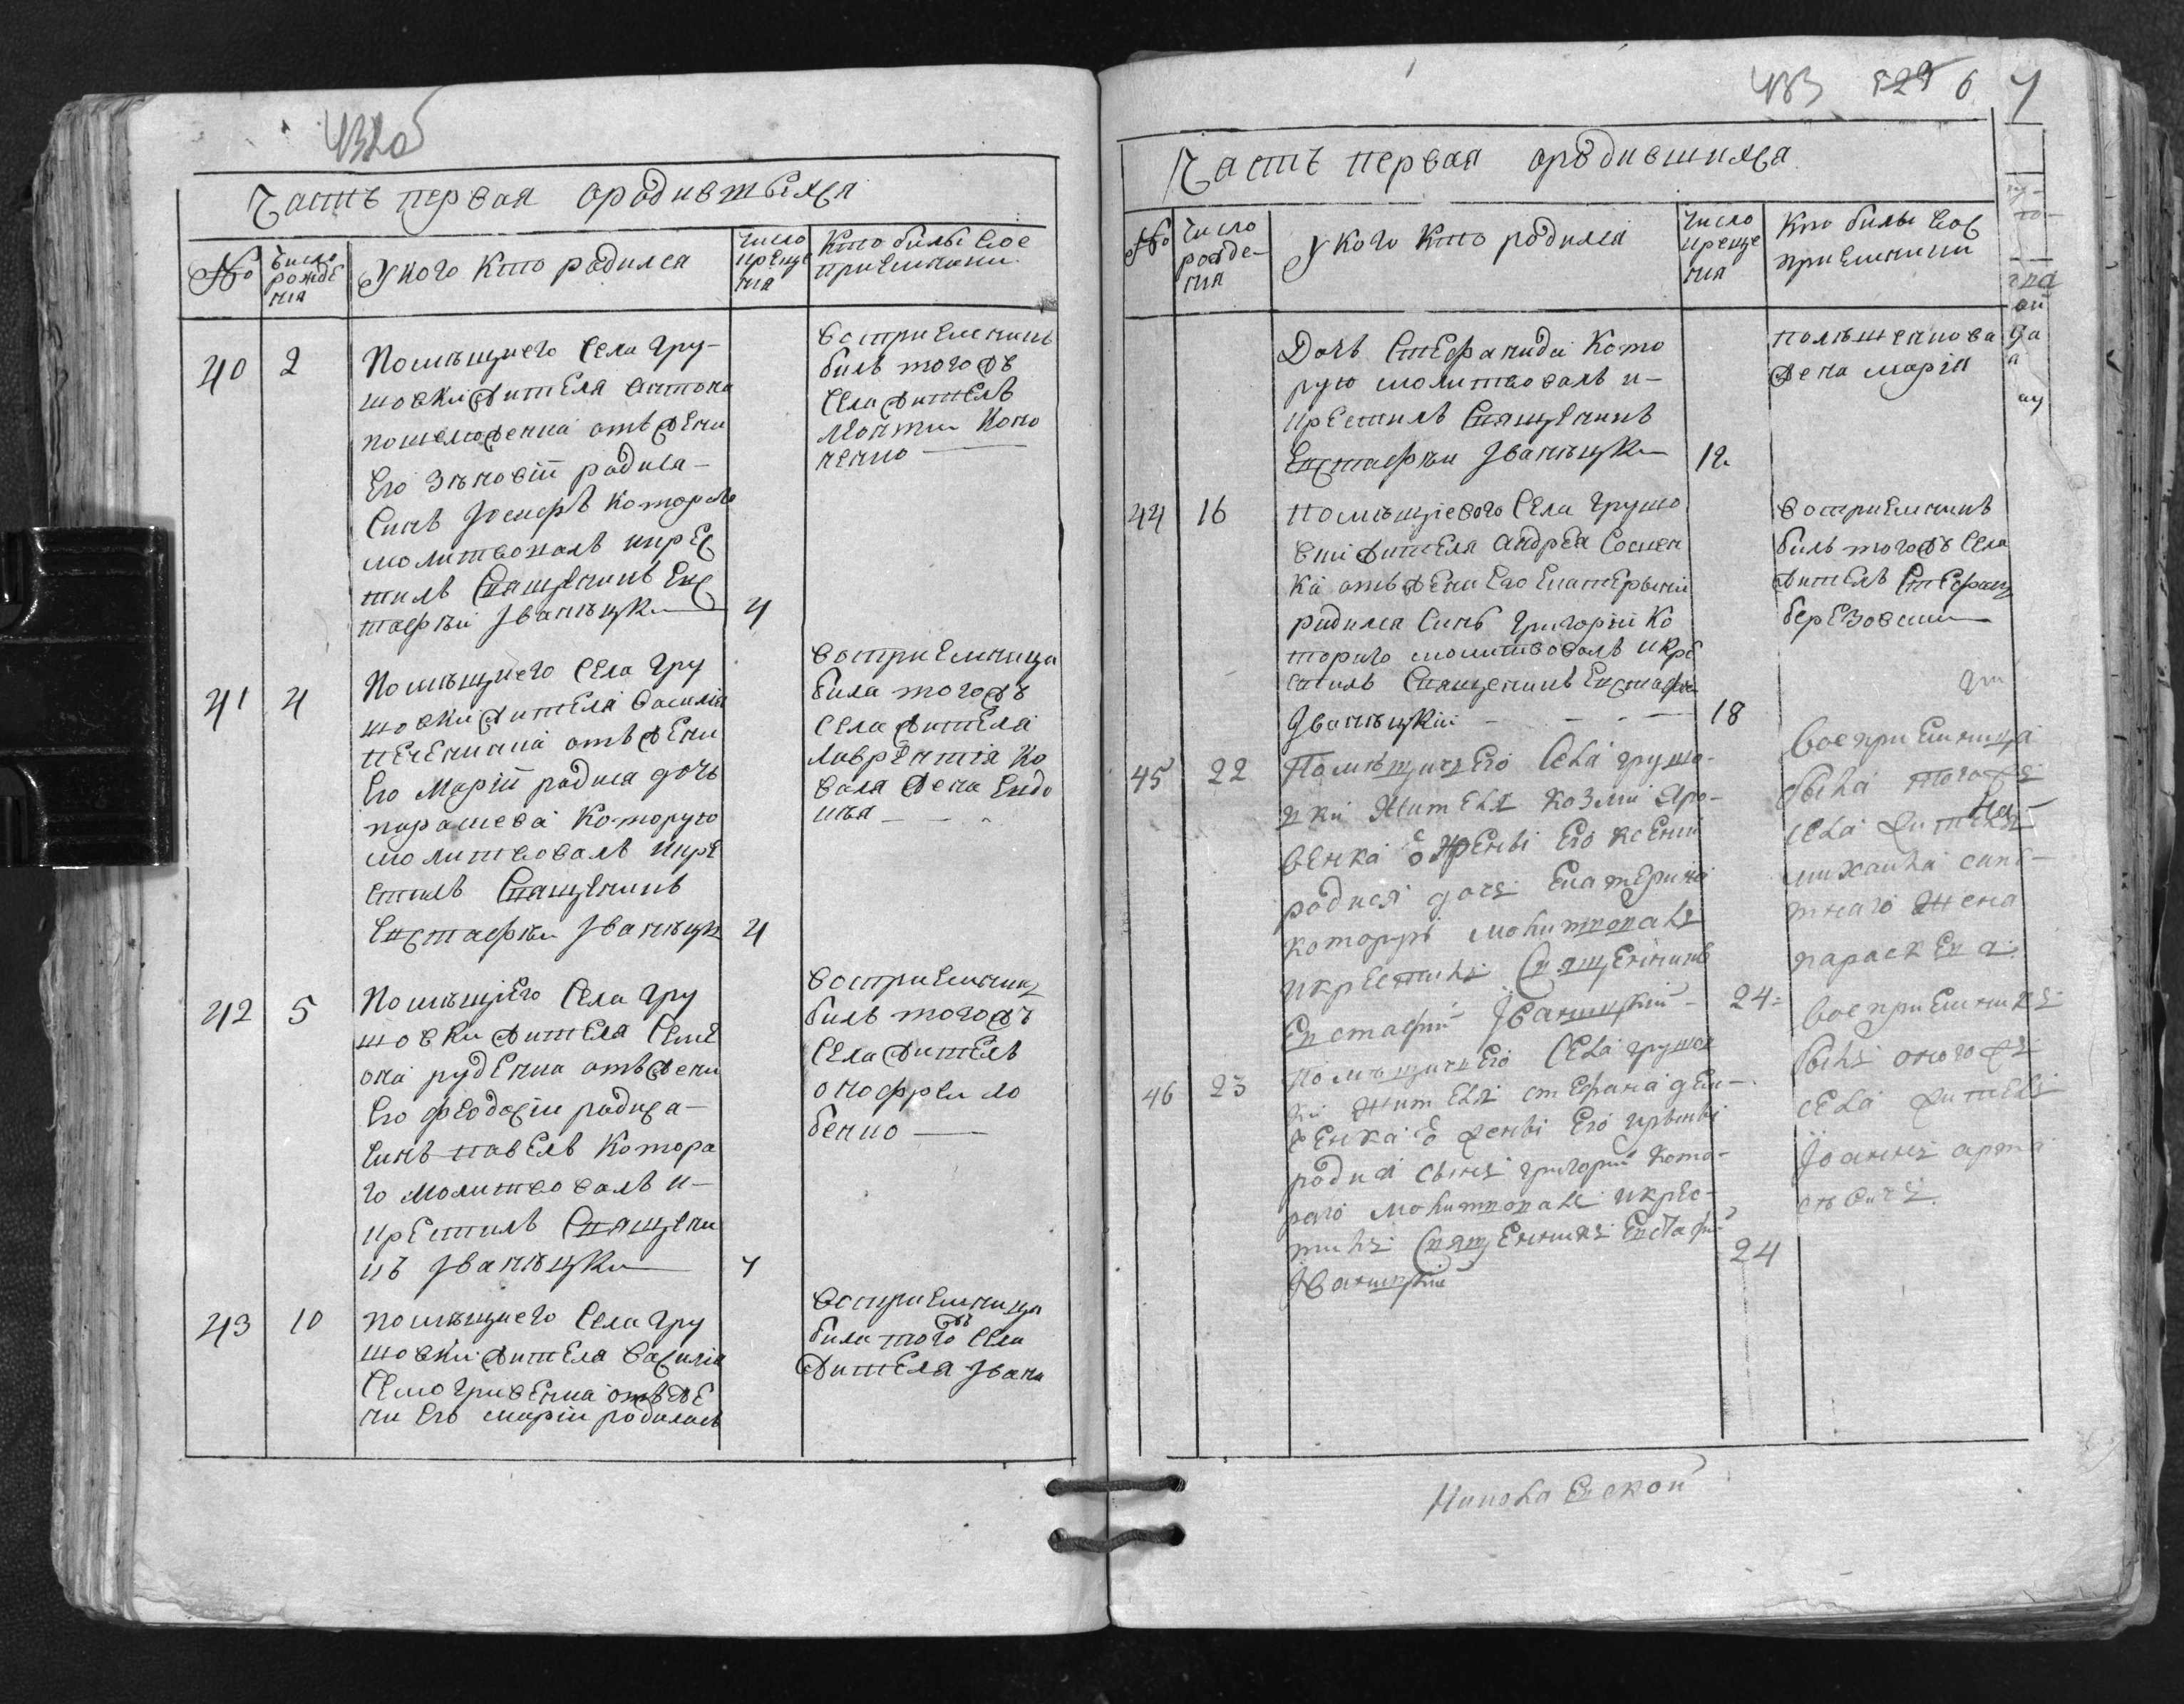 432об
Часть первая ородившыхся
№
Число рождения
У кого кто родился
Число крещения
Кто были восприемники
40
2
Помѣщичего села Гру-
шовки жителя антона
отъ жени
Его Зѣновіи родися
Синъ Иосифъ которого
молитвовалъ икрес
тилъ Священикъ Евс
тафѣи Званѣцки
4
восприемникъ
билъ тогожъ
села житель
Коно
ненко
41
4
Помѣщичего села Гру
шовки жителя василія
отъ жени
Его Маріи родися дочь
парасцева которую
молитвовалъ икре
стилъ Священикъ
Евстафѣи Званѣцк
4
восприемница
била тогожъ
села жителя
лаврентія Ко
валя жена Евдо
кия
42
5
Помѣщичего села Гру
шовки жителя Семе
она руденка отъ жени
Его Феодосіи родися
Синъ павелъ котора
го молитвовалъ и-
крестилъ Священи
къ Званѣцки
7
восприемникъ
билъ тогожъ
села житель
онофреи ло
бенко
43
10
помѣщичего села Гру
шовки жителя василія
Семогривенка отъ же
ни его маріи родилась
восприемница
била тогожъ села
жителя Ивана
433 529 6 7
Часть первая ородившихся
№
Число рожде-ния
У кого кто родился
Число крещения
Кто были восприемники
Дочь Стефанида кото
рую молитвовалъ и-
крестилъ Священикъ
Евстафѣи Званѣцки
12
жена марія
44
16
помѣщичевого села Грушо
вки жителя андрея Соснен
ка отъ жени его Екатерыни
родился Синъ Григорѣй ко
торого молитвовалъ икре
стилъ Священикъ Евстафѣи
Званѣцкій
18
восприемникъ
билъ тогожъ села
житель Стефанъ
березовски
45
22
Помѣщичъего села грушо-
вки жителя козми яро-
венка ѿ жены его ксении
родися дочъ Екатерина
которую молитвовалъ
икрестилъ Священникъ
Евстафий Іваницкий
24
восприемница
была тогожъ
села жителя
михаила
жена
параскева
46
23
помѣщичъего села грушов
ки жителя стефана дем-
ченка ѿ жены его
родися сынъ григорий кото-
раго молитвовалъ икрес-
тилъ Священникъ Евстафий
Іваницкий
24
восприемникъ
былъ оногожъ
села житель
Іоаннъ
Николаевской